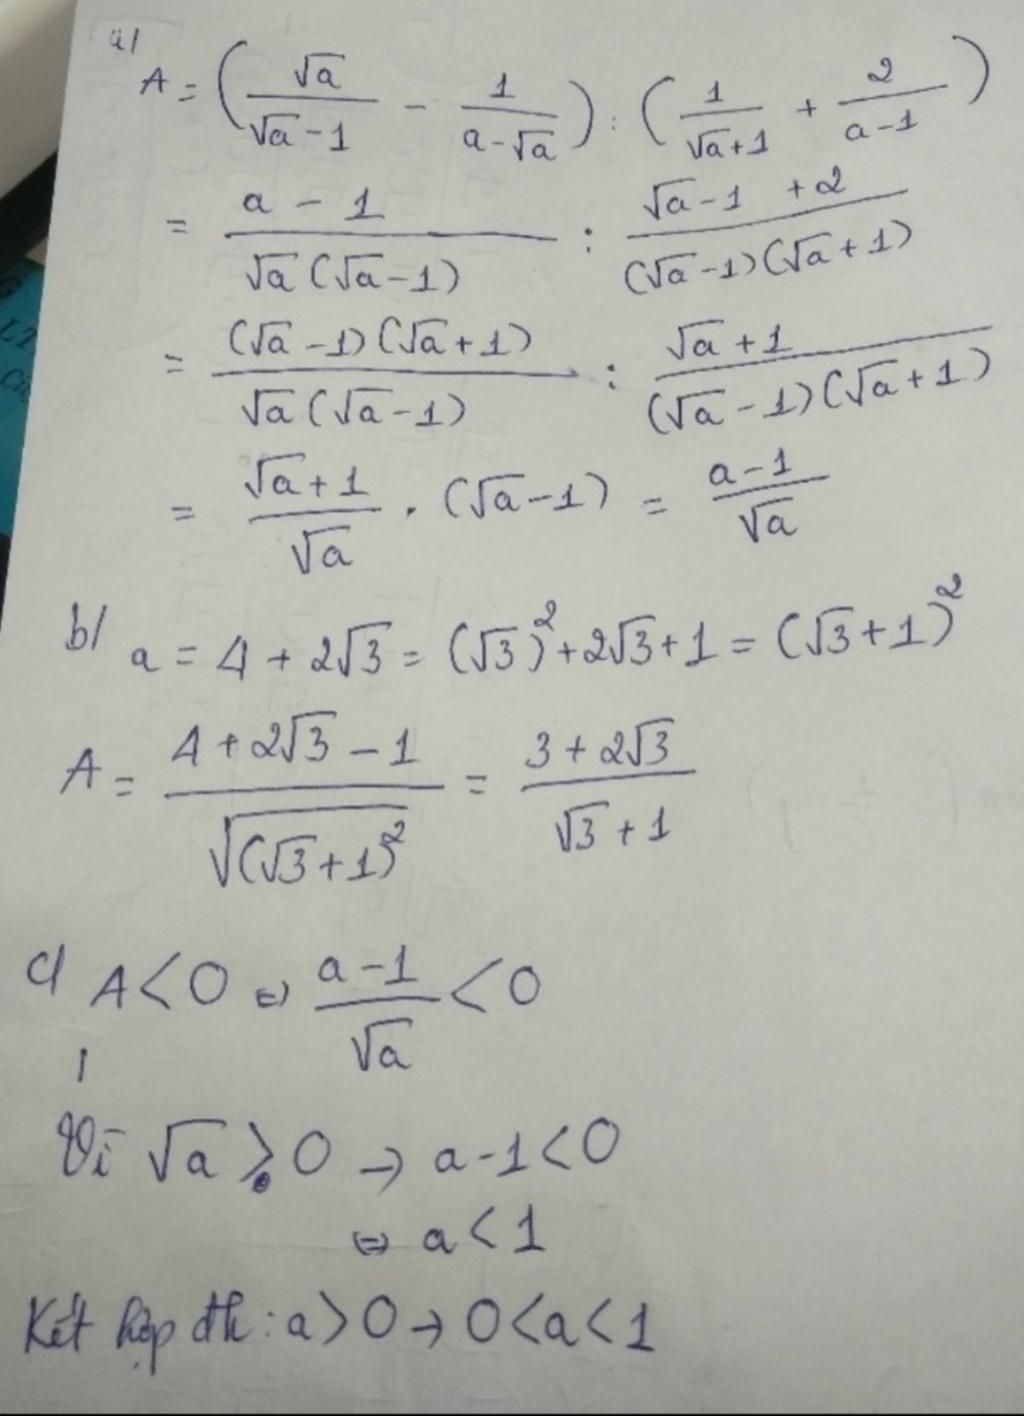 a/
A = (√a/(√a-1) - 1/(a-√a)) : (1/(√a+1) + 2/(a-1))
= (a - 1)/(√a(√a-1)) : (√a-1 +2)/((√a-1)(√a+1))
= ((√a-1)(√a+1))/(√a(√a-1)) : (√a+1)/((√a-1)(√a+1))
= (√a+1)/√a . (√a-1) = (a-1)/√a
b/ a = 4 + 2√3 = (√3)²+2√3+1 = (√3+1)²
A = (4+2√3-1)/√((√3+1)²) = (3+2√3)/(√3+1)
c/ A<0 ⇔ (a-1)/√a <0
Vì √a > 0 → a-1<0
⇔ a<1
Kết hợp đk: a>0 → 0<a<1